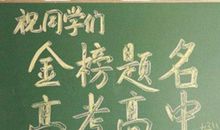 祝同学们
金榜题名
高考高中